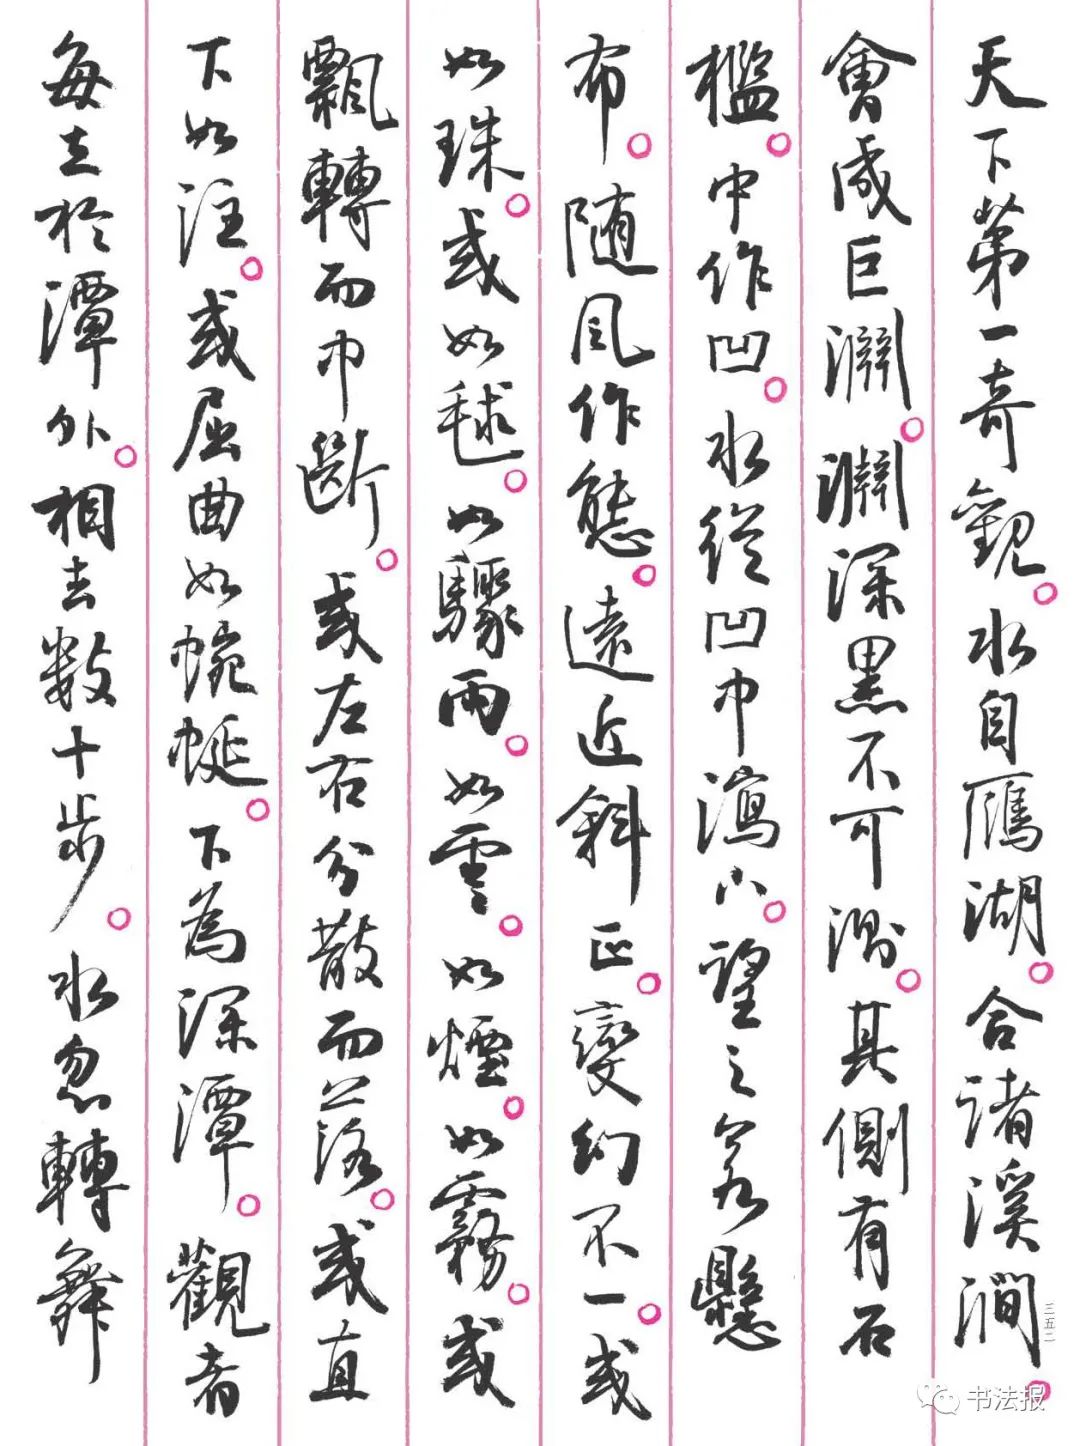 天下第一奇觀。水自鴈湖。合諸溪澗。
會成巨淵。淵深黑不可測。其側有石
檻。中作凹。水從凹中瀉下。望之若懸
布。随風作態。遠近斜正。變幻不一。或
如珠。或如毬。如驟雨。如雲。如煙。如霧。或
飄轉而中斷。或左右分散而落。或直
下如注。或屈曲如蜿蜒。下為深潭。觀者
每立於潭外。相去数十步。水忽轉舞
三五二
书法报